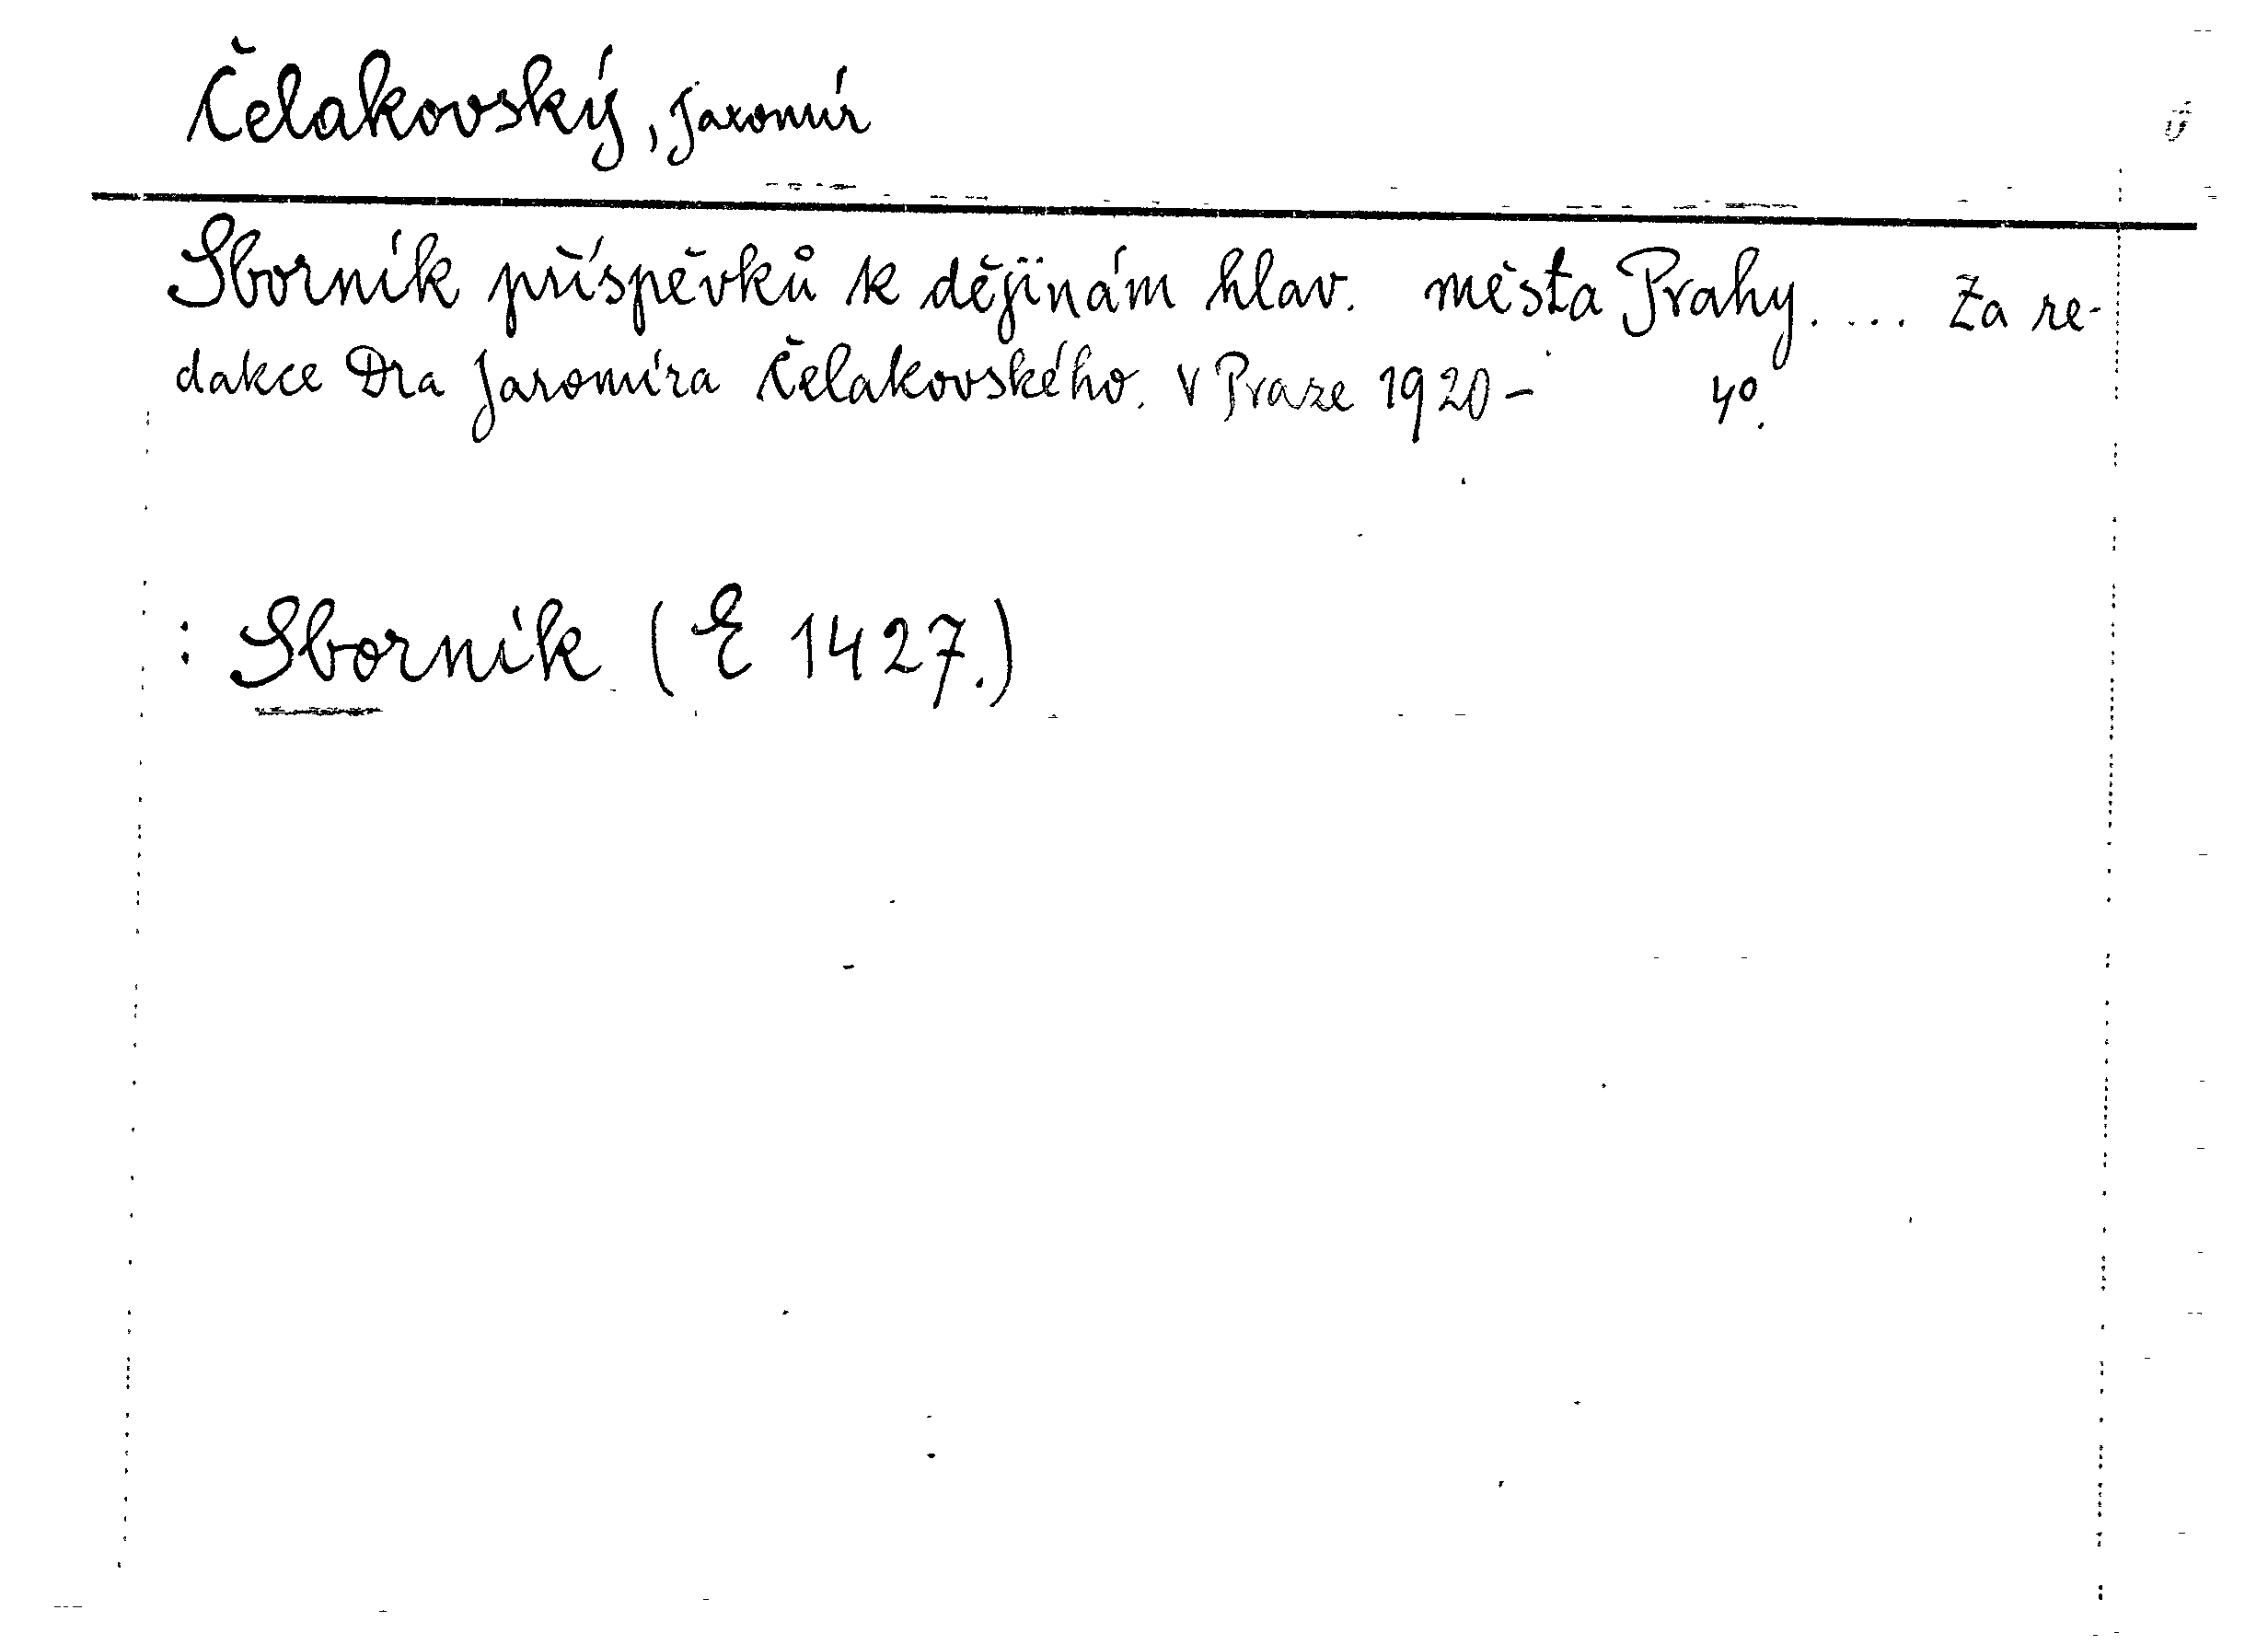 Čelakovský, Jaromír
Sborník příspěvků k dějinám hlav. města Prahy.... Za re-
dakce Dra Jaromíra Čelakovského. V Praze 1920 - 4°.
: Sborník (E 1427.)